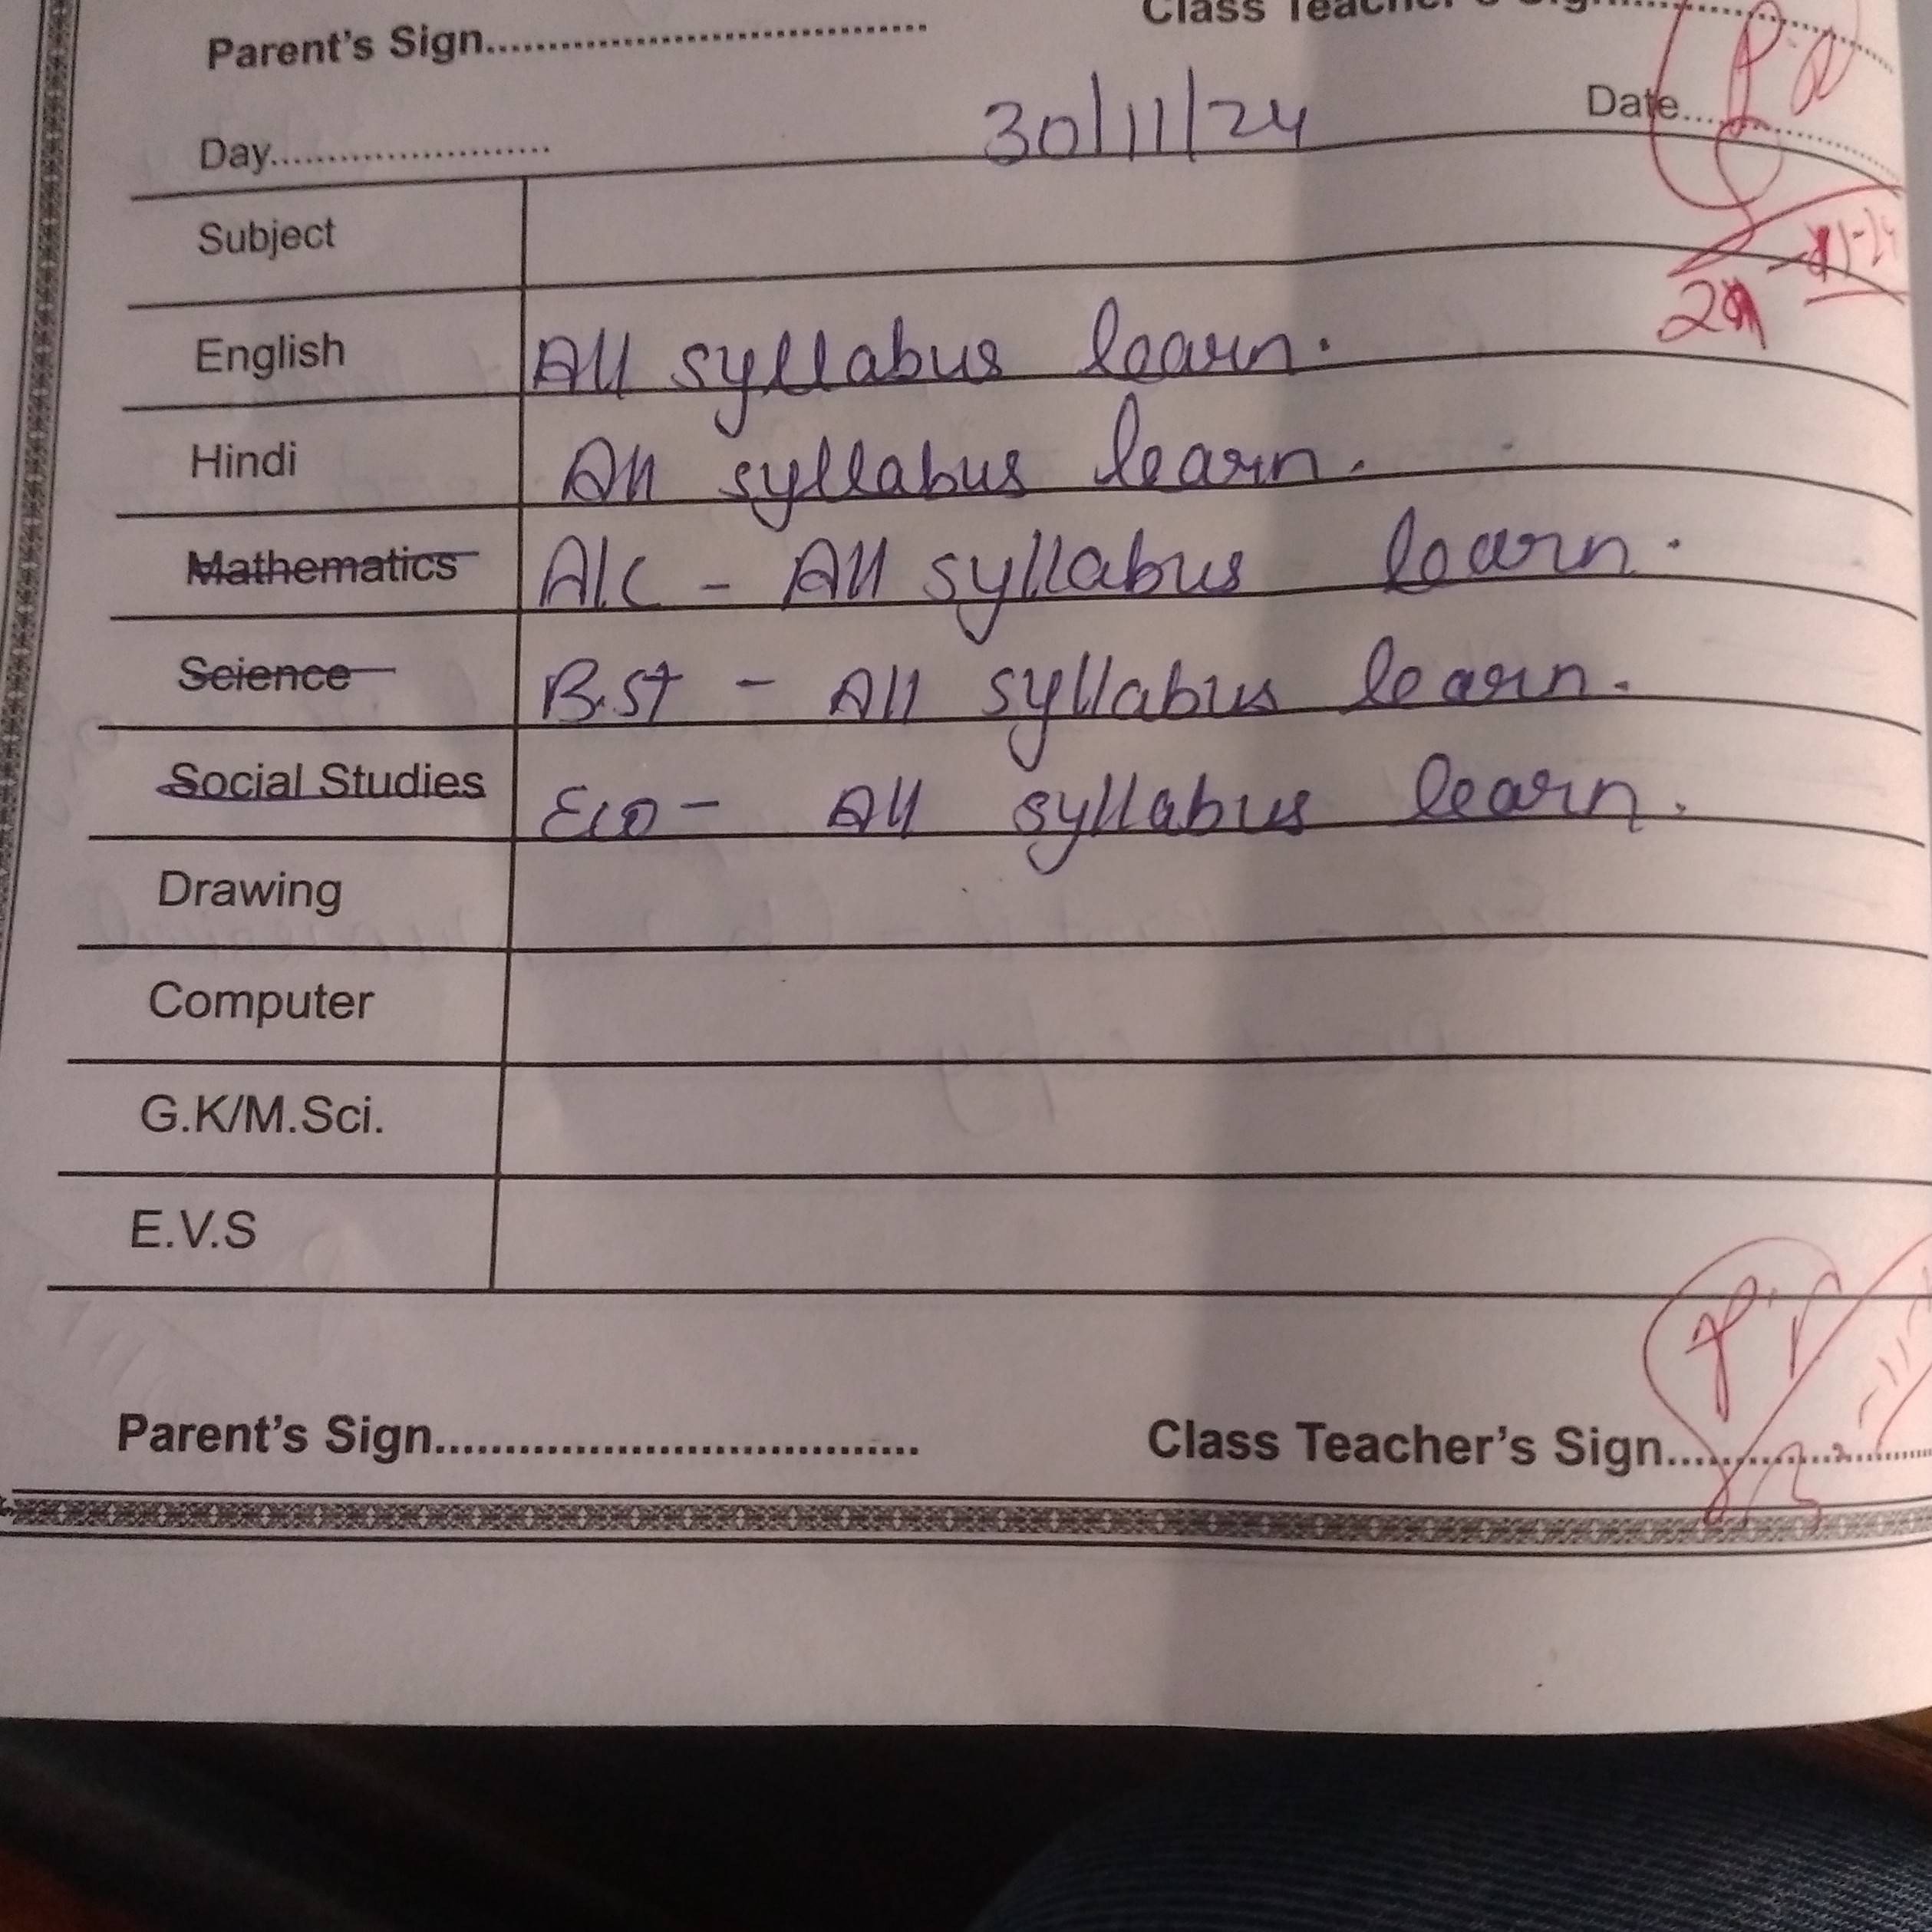 Parent's Sign.................................... Class Teacher's Sign
Day........................ 30/11/24 Date
Subject
English All syllabus learn.
Hindi All syllabus learn.
Mathematics A/c - All syllabus learn.
Science B.St - All syllabus learn.
Social Studies Eco - All syllabus learn.
Drawing
Computer
G.K/M.Sci.
E.V.S
Parent's Sign.................................... Class Teacher's Sign